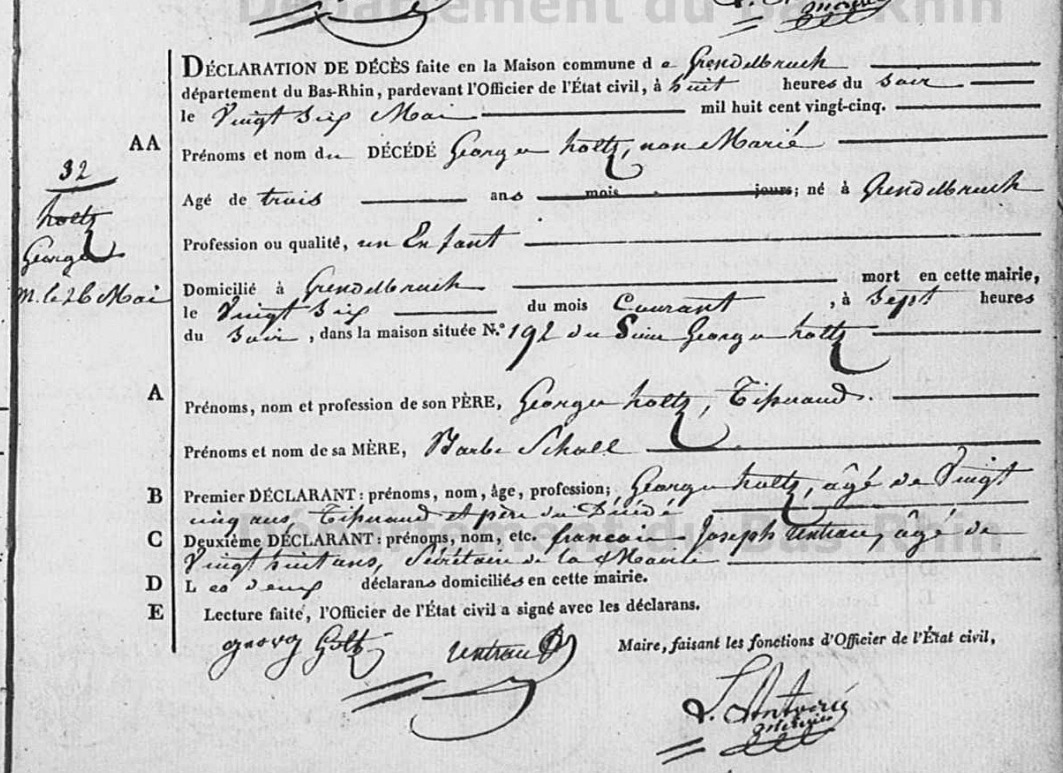 Département du Bas-Rhin
DÉCLARATION DE DÉCÈS faite en la Maison commune d e Grendelbruch
département du Bas-Rhin, pardevant l'Officier de l'État civil, à huit heures du Soir
le Vingt Six Mai mil huit cent vingt-cinq.
AA
Prénoms et nom du DÉCÉDÉ George holtz, non Marié
32
holtz
George
m. le 26 Mai
Agé de trois ans mois jours; né à Grendelbruch
Profession ou qualité, un Enfant
Domicilié à Grendelbruch mort en cette mairie,
le Vingt Six du mois Courant, à Sept heures
du Soir, dans la maison située N.º 192 du Sieur George holtz
A
Prénoms, nom et profession de son PÈRE, George holtz,
Prénoms et nom de sa MÈRE, Barbe Scholl
B
Premier DÉCLARANT: prénoms, nom, âge, profession; George holtz, âgé de Vingt
cinq ans, et père du Décédé
Département du Bas-Rhin
C
Deuxième DÉCLARANT: prénoms, nom, etc. francois Joseph untrau, âgé de
Vingt huit ans, Sécrétaire de la Mairie
D
L es deux déclarans domiciliés en cette mairie.
E
Lecture faite, l'Officier de l'État civil a signé avec les déclarans.
georg Holtz untrau
Maire, faisant les fonctions d'Officier de l'État civil,